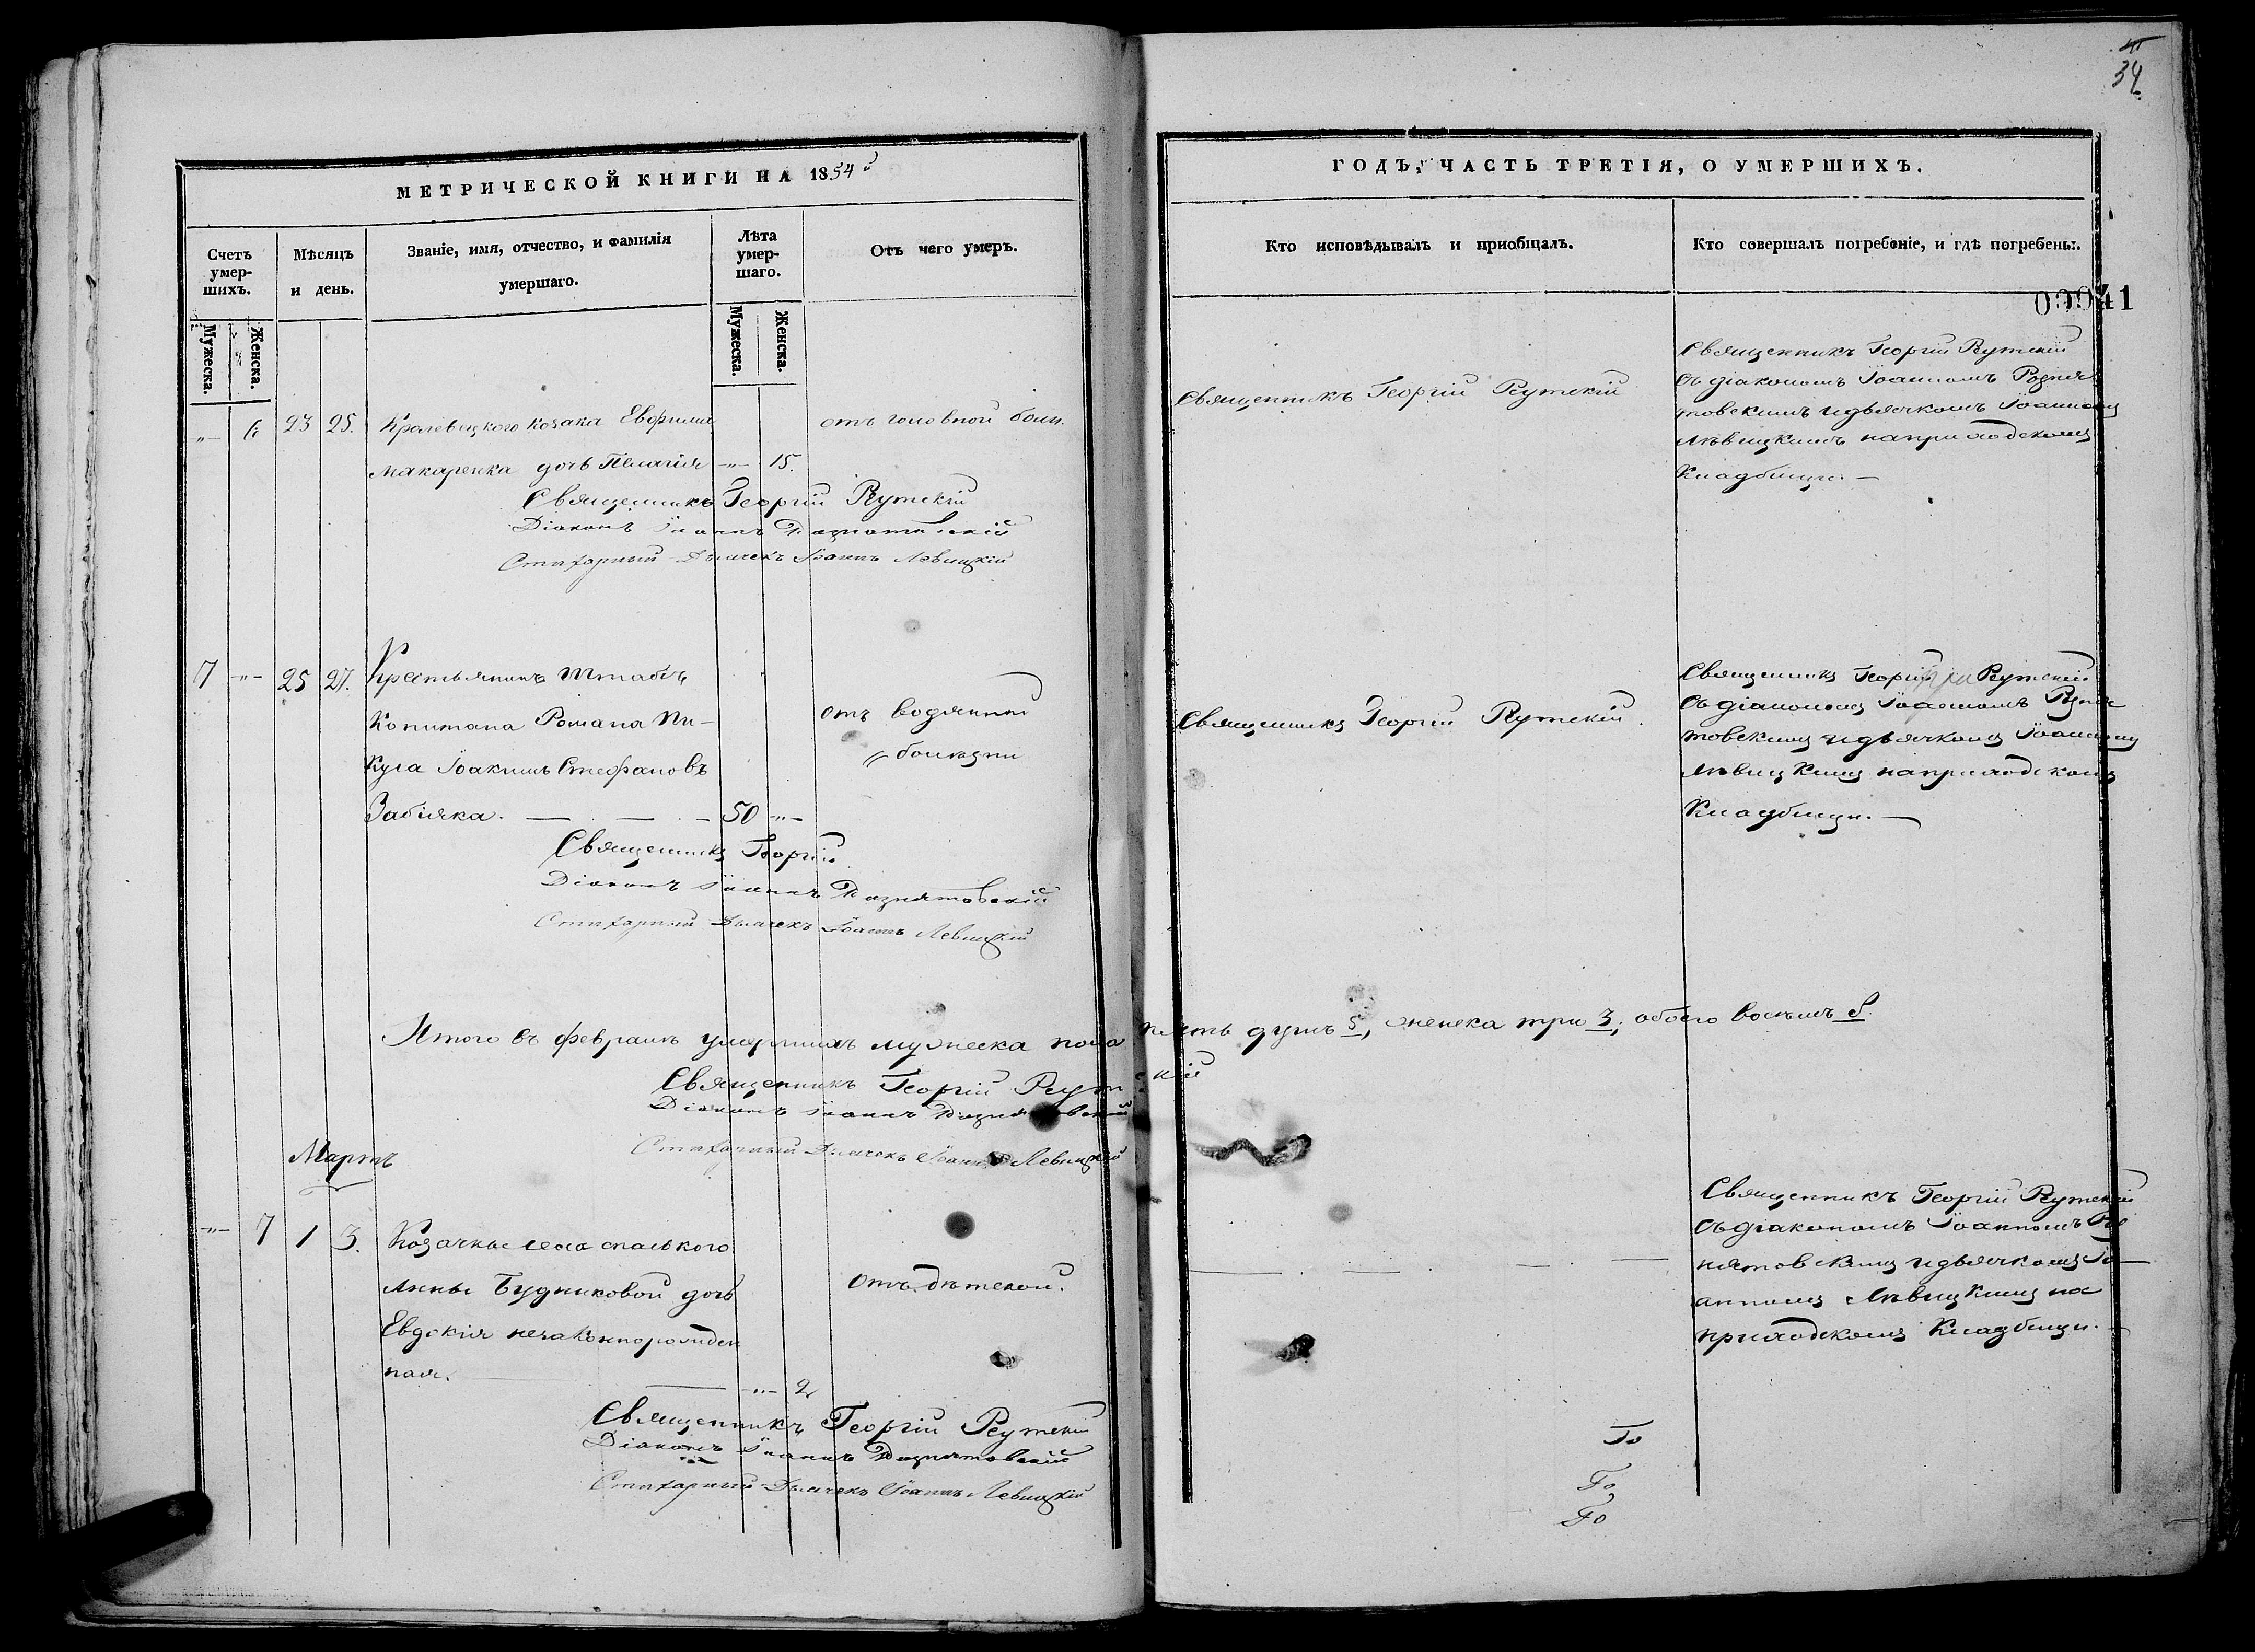 34
МЕТРИЧЕСКОЙ КНИГИ НА 1854й
ГОДЪ, ЧАСТЬ ТРЕТІЯ, О УМЕРШИХЪ.
Счетъ умер-
шихъ.
Мѣсяцъ
и день.
Званіе, имя, отчество, и фамилія
умершаго.
Лѣта
умер-
шаго.
Отъ чего умеръ.
Мужеска.
Женска.
Мужеска.
Женска.
Кто исповѣдывалъ и приобщалъ.
Кто совершалъ погребеніе, и гдѣ погребены.
00041
-"- 6 23 25. Кралевецкого козака Евфимия
отъ головной боли.
Макаренка дочь Пелагія -"- 15.
Священникъ Георгій Рутскій
Священникъ Георгій Рутскій
Діаконъ Іоаннъ Рознятовскій
Стихарный Дьячекъ Іоаннъ Левицкій
Священникъ Георгій Рутскій
съ діакономъ Іоанномъ Розня
товскимъ и дьячкомъ Іоанномъ
Лѣвицкимъ на приходскомъ
Кладбищи. —
7 -"- 25 27. Крестьянинъ Штабсъ
Копитана Романа Пи-
Кула Іоакимъ Стефановъ
Забіяка. — . — . — 50 -"-
отъ водянной
болѣзни
Священникъ Георгій
Діаконъ Іоаннъ Рознятовскій
Стихарный Дьячекъ Іоаннъ Левицкій
Священникъ Георгій Рутскій.
Священникъ Георгій Рутскій
съ діакономъ Іоанномъ Розня
товскимъ и дьячкомъ Іоанномъ
Лѣвицкимъ на приходскомъ
Кладбищи. —
Итого въ февралѣ умершихъ мужеска пола пять душъ 5, женска три 3, обоего восемь 8.
Священникъ Георгій Рутскій
Діаконъ Іоаннъ Рознятовскій
Стихарный Дьячекъ Іоаннъ Левицкій
Мартъ
-"- 7 1 3. Козачки села Спаського
Анны Будниковой дочь
Евдокія незаконнорожден
ная. — -"- 2
отъ дѣтской.
Священникъ Георгій Рутскій
Діаконъ Іоаннъ Рознятовскій
Стихарный Дьячекъ Іоаннъ Левицкій
Священникъ Георгій Рутскій
съ діакономъ Іоанномъ Роз
нятовскимъ и дьячкомъ Іо
анномъ Лѣвицкимъ на
приходскомъ Кладбищи. —
Го
Го
Го